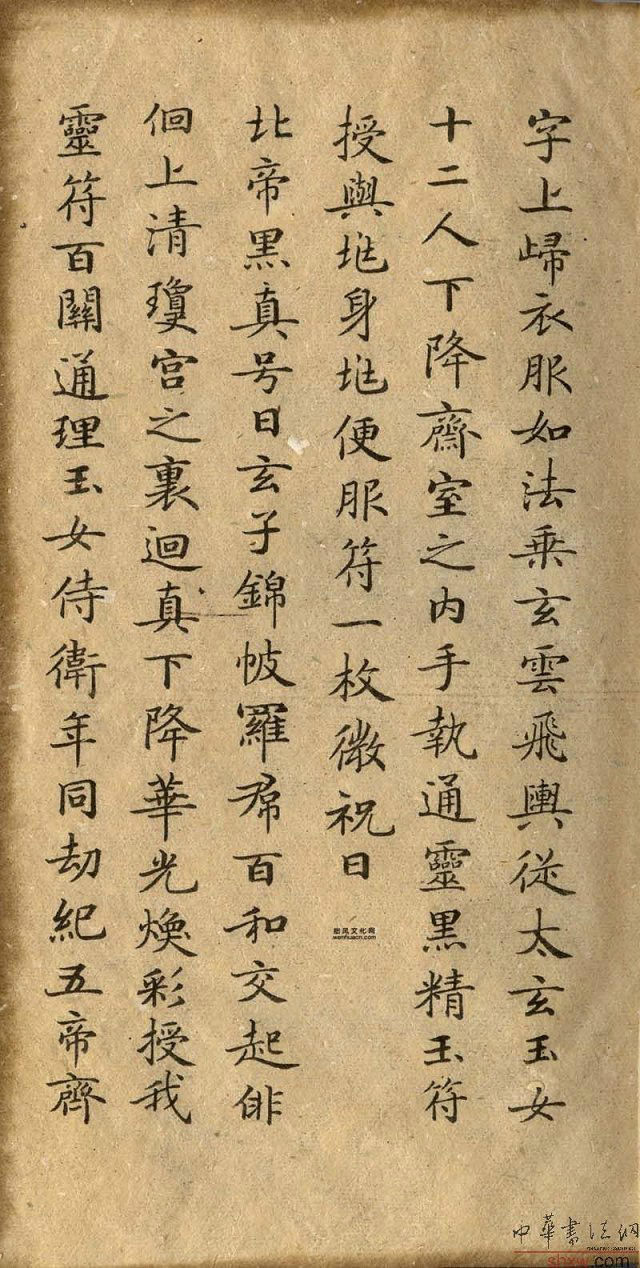 字上歸衣服如法乘玄雲飛輿從太玄玉女
十二人下降齋室之内手執通靈黑精玉符
授與兆身兆便服符一枚微祝曰
北帝黑真号曰玄子錦帔羅帬百和交起俳
徊上清瓊宮之裏迴真下降華光煥彩授我
靈符百關通理玉女侍衛年同劫紀五帝齊
wenhuacn.com
中华书法网
shxw.com